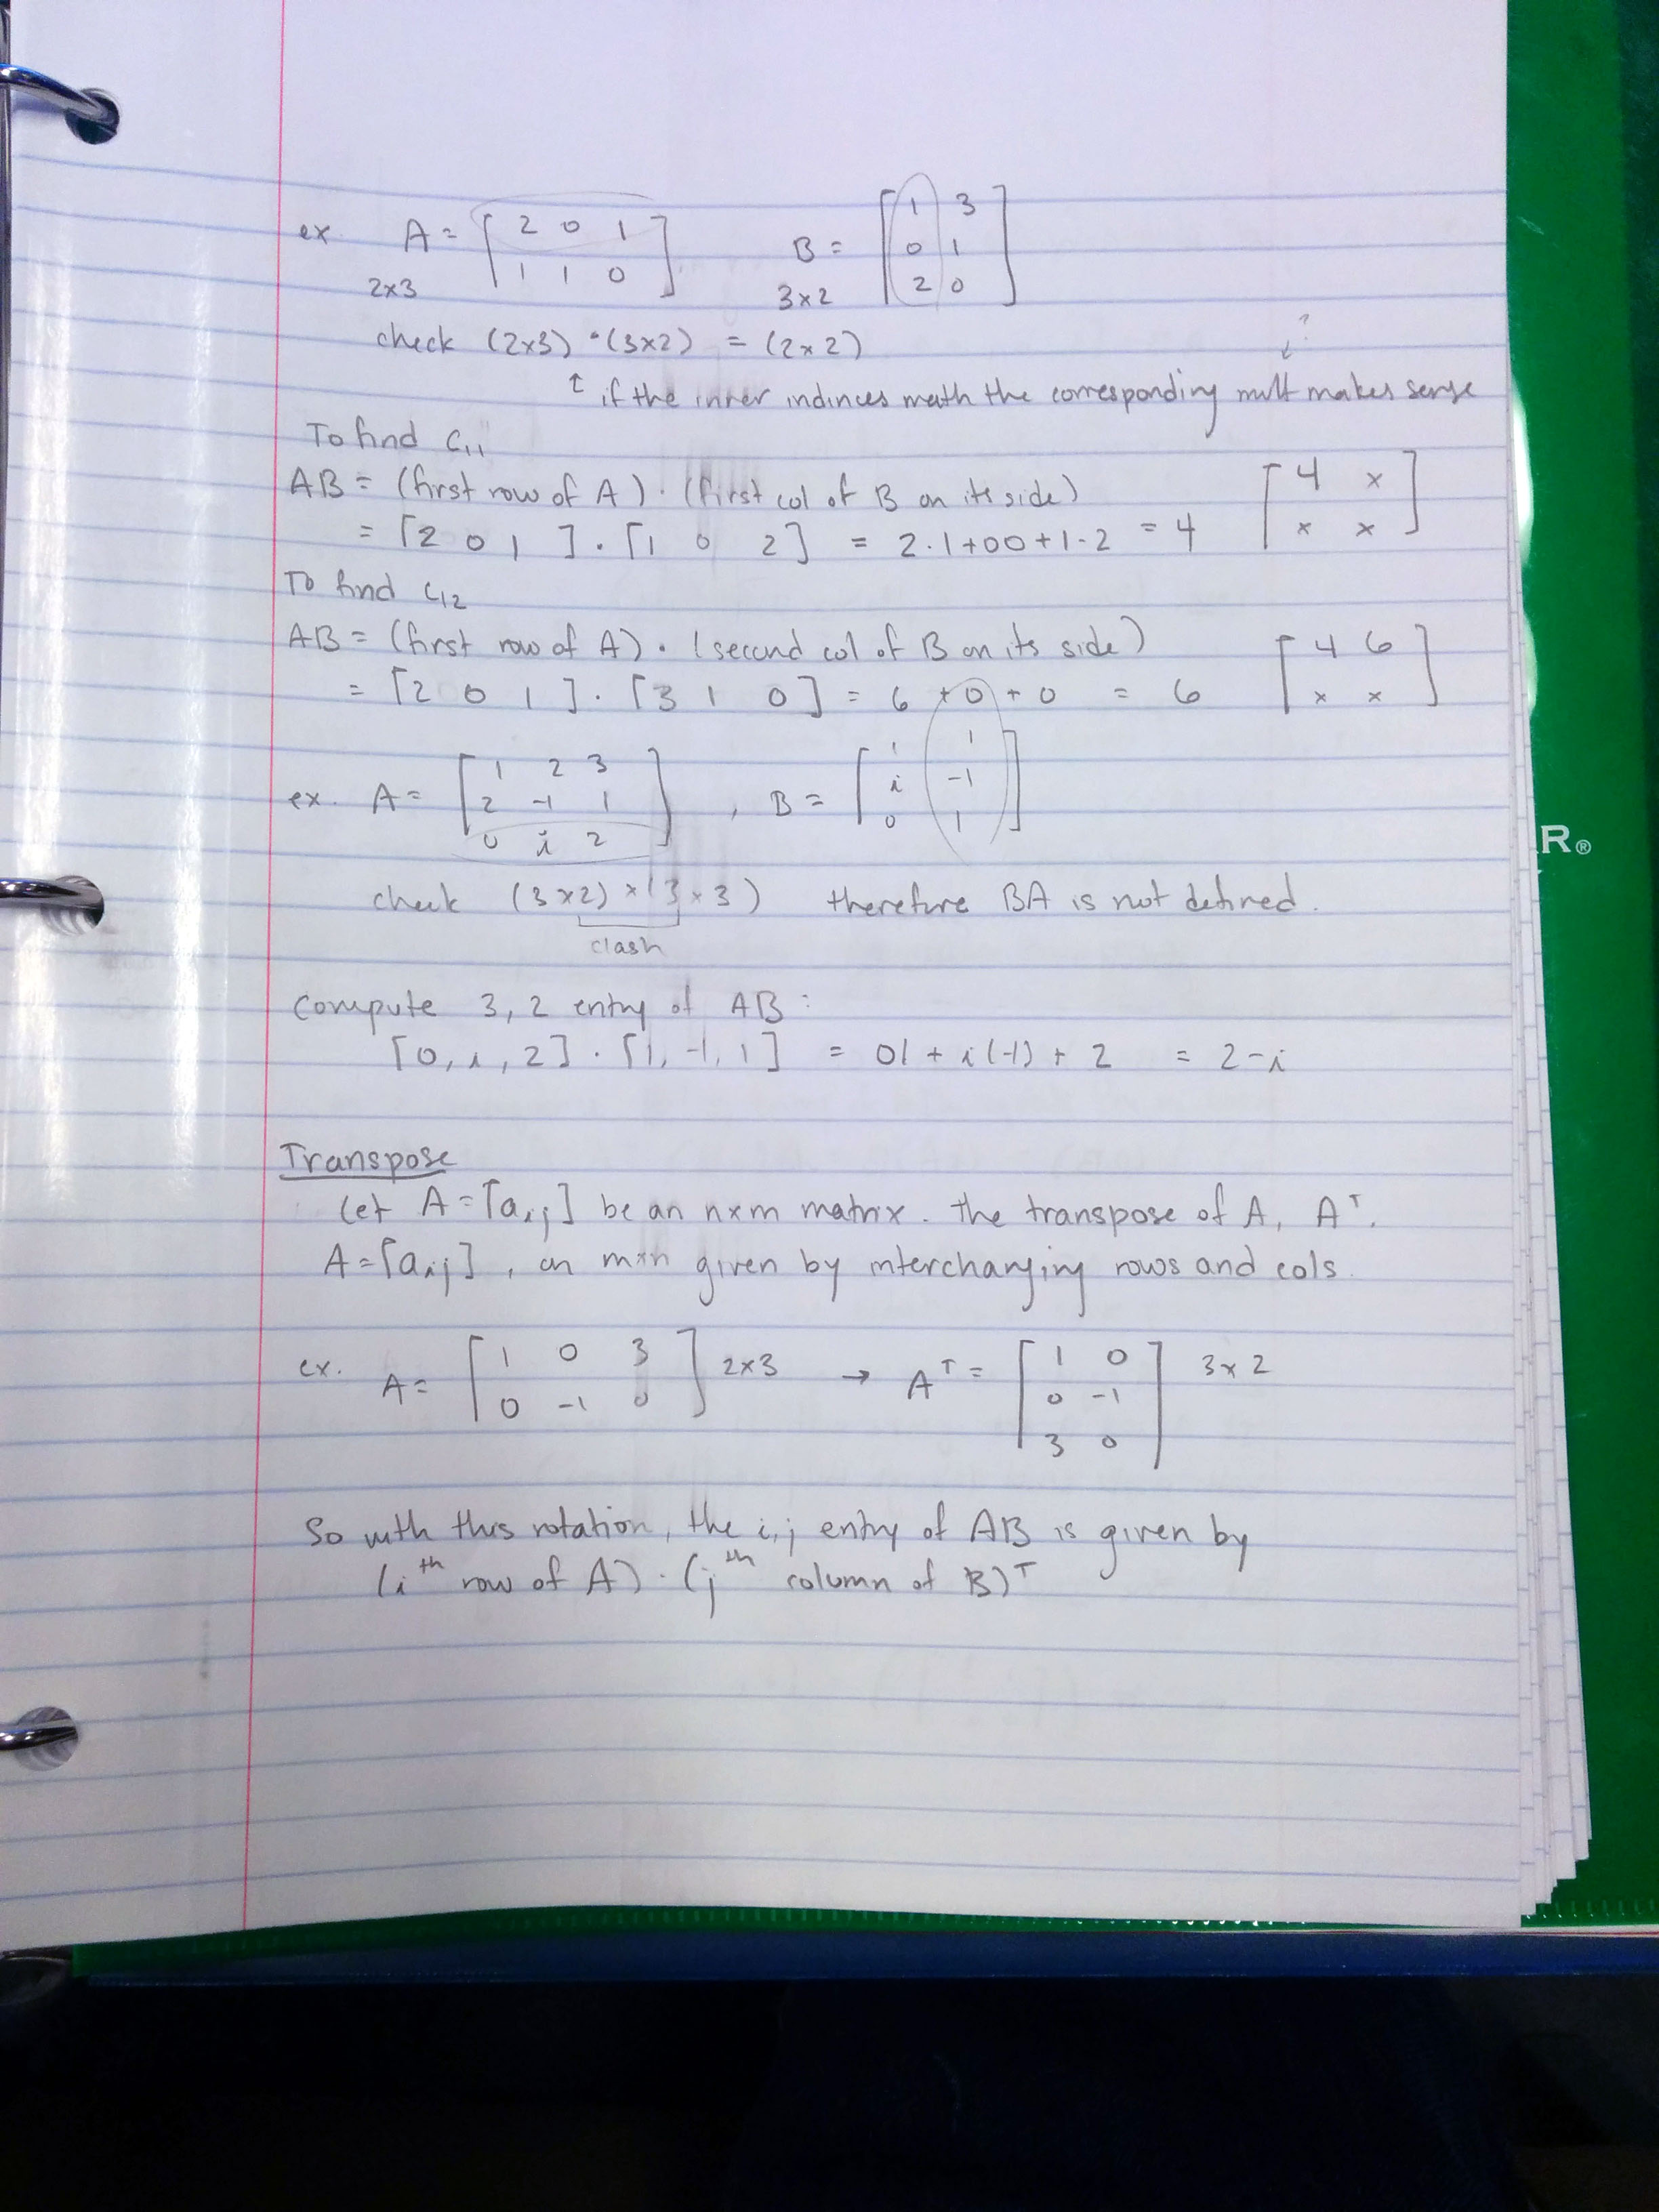 ex. A = [ 2 0 1 B = [ 1 3
1 1 0 ] 0 1
2x3 3x2 2 0 ]
check (2x3) · (3x2) = (2x2)
?
↑ if the inner indinces math the corresponding mult makes sense
To find C₁₁
AB = (first row of A) · (first col of B on its side) [ 4 x
= [2 0 1 ] · [1 0 2] = 2·1+00+1·2 = 4 x x ]
To find C₁₂
AB = (first row of A) · (second col of B on its side) [ 4 6
= [2 0 1 ] · [3 1 0] = 6 + 0 + 0 = 6 x x ]
ex. A = [ 1 2 3 , B = [ 1 1
2 -1 1 i -1
0 i 2 ] 0 1 ]
check (3x2) x (3x3) therefore BA is not defined.
clash
Compute 3, 2 entry of AB :
[0, i, 2] · [1, -1, 1] = 01 + i(-1) + 2 = 2-i
Transpose
Let A = [aᵢⱼ] be an nxm matrix. the transpose of A, Aᵀ.
A = [aᵢⱼ], an mxn given by interchanging rows and cols.
ex. A = [ 1 0 3 2x3 → Aᵀ = [ 1 0 3x2
0 -1 0 ] 0 -1
3 0 ]
So with this rotation, the i,j entry of AB is given by
(iᵗʰ row of A) · (jᵗʰ column of B)ᵀ
R®